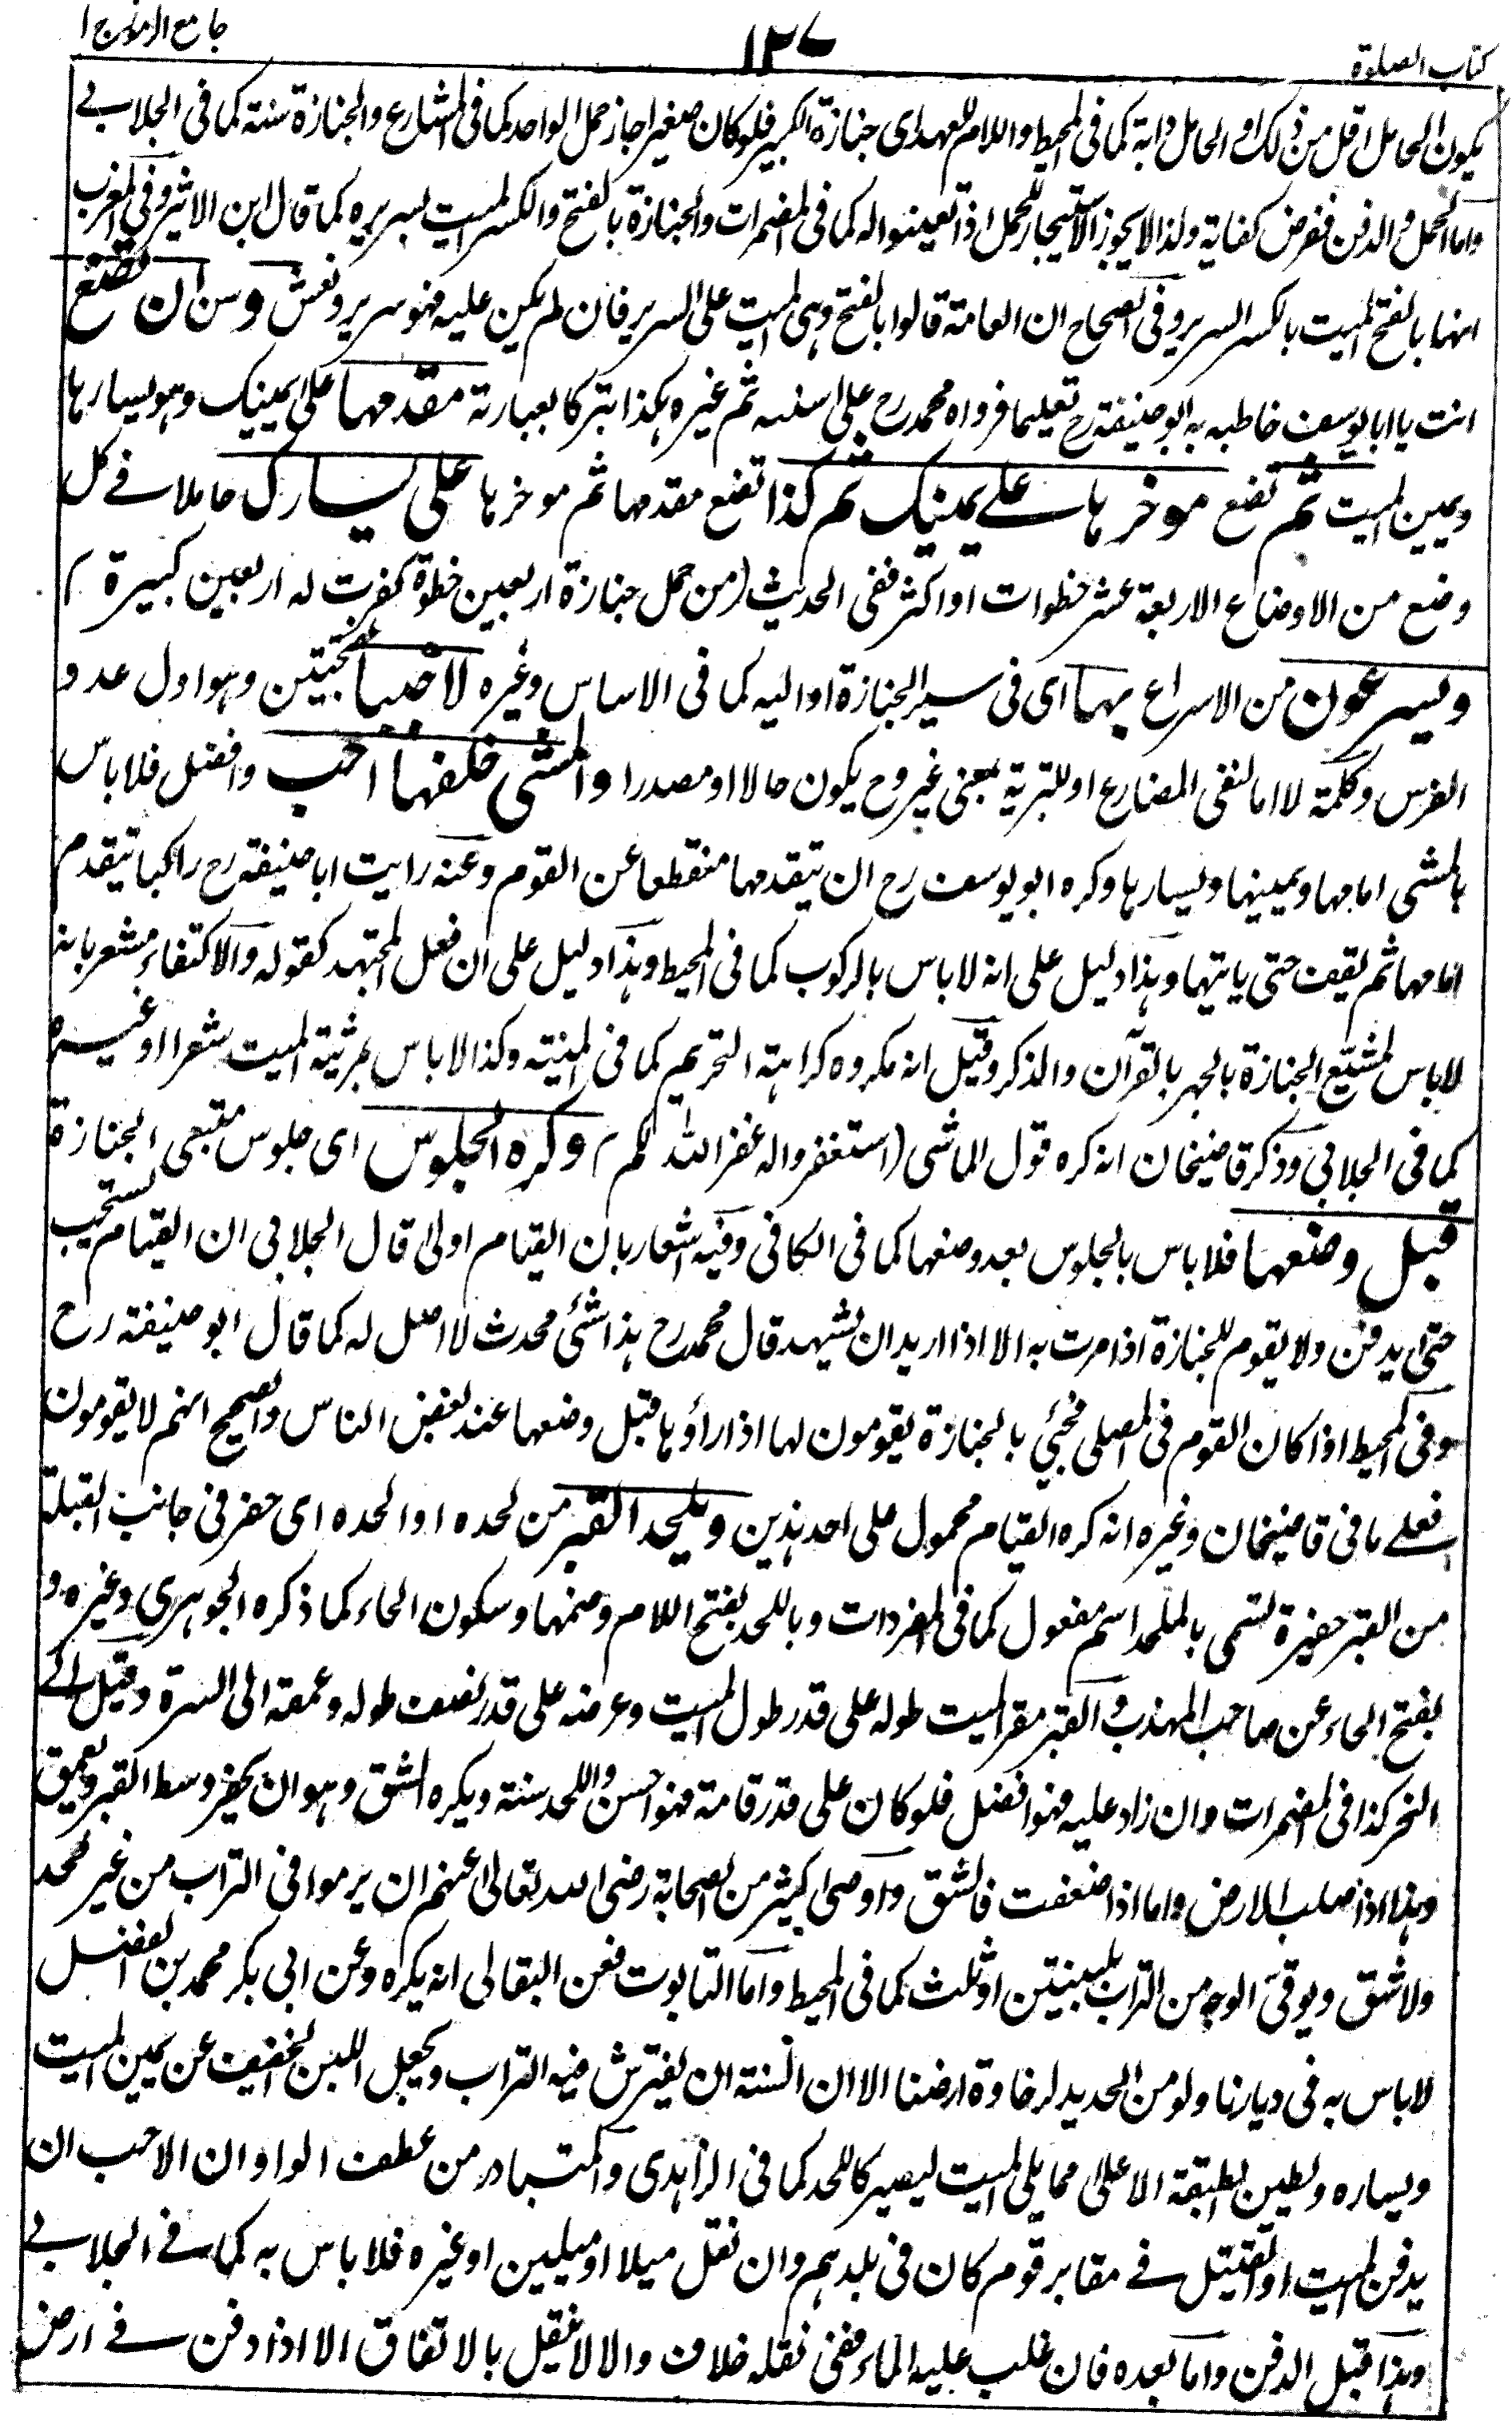 جامع الرموز ج ا
١٢٧
كتاب الصلوة
يكون الحامل اقل من ذلك او الحامل دابة كما فى المحيط واللام للعهد اى جنازة الكبير فلو كان صغيرا جاز حمل الواحد كما فى المشارع والجنازة سنة كما فى الجلابي
واما الحمل والدفن ففرض كفاية ولذا لا يجوز الاستيجار للحمل اذا تعينوا له كما فى المضمرات والجنازة بالفتح والكسر الميت بسريره كما قال ابن الاثير وفي المغرب
انها بالفتح الميت بالكسر السرير وفى الصحاح ان العامة قالوا بالفتح وهى الميت على السرير فان لم يكن عليه فهو سرير ونعش وسن ان تضع
انت يا ابا يوسف خاطبه به ابو حنيفة رح تعليما فرواه محمد رح على اسنه ثم غيره هكذا تبركا بعبارته مقدمها على يمينك وهو يسارها
ويمين الميت ثم تضع موخرها على يمينك ثم كذا تضع مقدمها ثم موخرها على يسارك حاملا فى كل
وضع من الاوضاع الاربعة عشر خطوات او اكثر ففى الحديث (من حمل جنازة اربعين خطوة كفرت له اربعين كبيرة)
ويسرعون من الاسراع بها اى فى سير الجنازة او اليه كما فى الاساس وغيره لا خببا بفتحتين وهو اول عدو
الفرس وكلمة لا اما لنفى المضارع او للتبرية بمعنى غير وح يكون حالا او مصدرا والمشى خلفها احب وافضل فلا باس
بالمشى امامها ويمينها ويسارها وكره ابو يوسف رح ان يتقدمها منقطعا عن القوم وعنه رايت ابا حنيفة رح راكبا يتقدم
امامها ثم يقف حتى ياتيها وهذا دليل على انه لا باس بالركوب كما فى المحيط وهذا دليل على ان فعل المجتهد كقوله والاكتفاء مشعر بانه
لا باس لمشيع الجنازة بالجهر بالقرآن والذكر وقيل انه مكروه كراهة التحريم كما فى المنية وكذا لا باس بمرثية الميت شعرا او غيره
كما فى الجلابي وذكر قاضيخان انه كره قول الماشى (استغفروا له غفر الله لكم) وكره الجلوس اى جلوس متبعى الجنازة
قبل وضعها فلا باس بالجلوس بعد وضعها كما فى الكافى وفيه اشعار بان القيام اولى قال الجلابي ان القيام يستحب
حتى يدفن ولا يقوم للجنازة اذا مرت به الا اذا اريد ان يشهد قال محمد رح هذا شئ محدث لا اصل له كما قال ابو حنيفة رح
وفى المحيط اذا كان القوم فى المصلى فجئ بالجنازة يقومون لها اذا رأوها قبل وضعها عند بعض الناس والصحيح انهم لا يقومون
فعلى ما فى قاضيخان وغيره انه كره القيام محمول على احد هذين ويلحد القبر من لحده او الحده اى حفر فى جانب القبلة
من القبر حفيرة تسمى بالملحد اسم مفعول كما فى المفردات وباللحد بفتح اللام وضمها وسكون الحاء كما ذكره الجوهرى وغيره و
بفتح الحاء عن صاحب المهذب والقبر مقر الميت طوله على قدر طول الميت وعرضه على قدر نصف طوله وعمقه الى السرة وقيل الى
النحر كذا فى المضمرات وان زاد عليه فهو افضل فلو كان على قدر قامة فهو احسن واللحد سنة ويكره الشق وهو ان يحفر وسط القبر ويعمق
وهذا اذا صلب الارض واما اذا ضعفت فالشق واوصى كثير من الصحابة رضى الله تعالى عنهم ان يرموا فى التراب من غير لحد
ولا شق ويوقى الوجه من التراب بلبنتين او ثلث كما فى المحيط واما التابوت فعن البقالى انه يكره وعن ابى بكر محمد بن الفضل
لا باس به فى ديارنا ولو من الحديد لرخاوة ارضنا الا ان السنة ان يفترش فيه التراب ويجعل اللبن الخفيف عن يمين الميت
ويساره ويطين الطبقة الاعلى مما يلى الميت ليصير كاللحد كما فى الزاهدى والمتبادر من عطف الواو ان الاحب ان
يدفن الميت او القتيل فى مقابر قوم كان فى بلدهم وان نقل ميلا او ميلين او غيره فلا باس به كما فى الجلابي
وهذا قبل الدفن واما بعده فان غلب عليه الماء ففى نقله خلاف والا لا ينقل بالاتفاق الا اذا دفن فى ارض